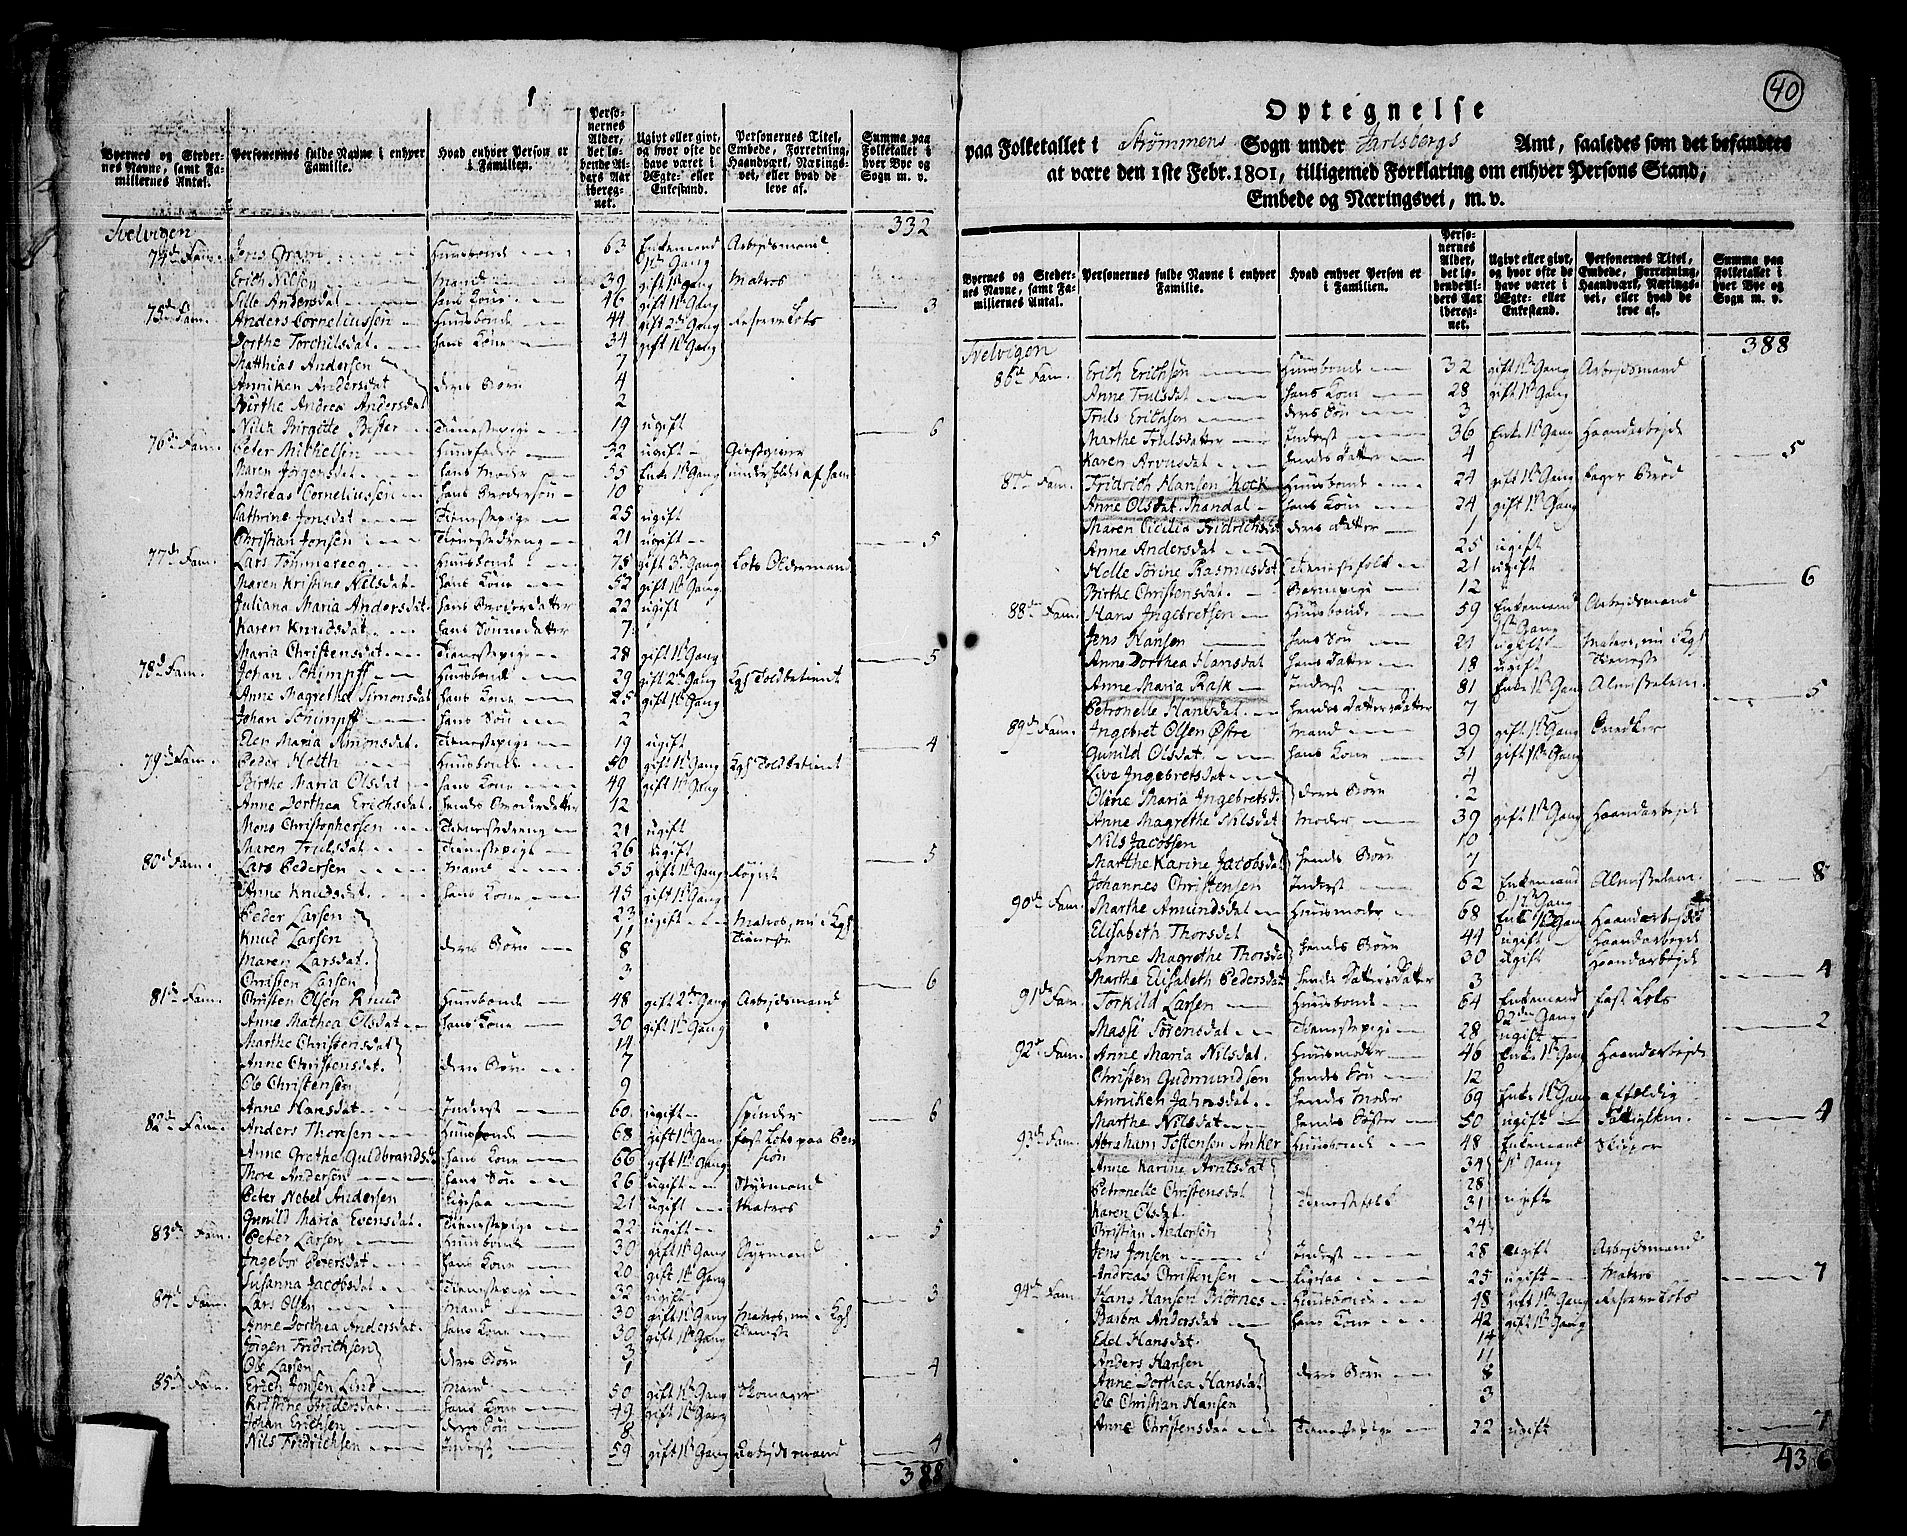 Byernes og Steder- nes Navne, samt Fa- millernes Antal. | Personernes fulde Navne i enhver Familie. | Hvad enhver Person er i Familien. | Perso- nernes Alder, det lø- bende Al- ders Aar iberegnet. | Ugivt eller givt, og hvor ofte de have været i Ægte- eller Enkestand. | Personernes Titel, Embede, Forretning, Haandværk, Nærings- vei, eller hvad de leve af. | Summa paa Folketallet i hver Bye og Sogn m. v.
Svelvigen 332
74de Fam. Jens Dram Huusbonde 63 Enkemand 1ste Gang Arbejdsmand
Erich Nilsen Mand 39 gift 1ste gang Matros
Sille Andersdat hans Kone 46 gift 1ste Gang 3
75de Fam. Anders Corneliussen Huusbonde 44 gift 2den Gang Reserve Lots
Dorthe Torchilsdat hans Kone 34 gift 1ste Gang
Matthias Andersen 7
Anniken Andersdat deres Børn 4
Birthe Andrea Andersdat 2
Nilia Birgitte Bester Tienestepige 19 ugift 6
76de Fam. Peter Michelsen Huusfader 32 ugift Giestgiver
Maren Jørgensdat hans Moder 55 Enke 1ste Gang underholdes af ham
Andreas Corneliussen hans Brodersøn 10
Cathrine Jonsdat Tienestepige 25 ugift
Christian Jonsen Tienestedreng 21 ugift 5
77de Fam. Lars Tømmeraas Huusbonde 75 gift 3die Gang Lots Oldermand
Maren Kristine Nelsdat hans Kone 52 gift 1ste Gang
Juliana Maria Andersdat hans Broderdatter 22 ugift
Karen Knudsdat hans Sønnedatter 7
Maria Christensdat Tienestepige 28 gift 1ste Gang 5
78de Fam. Johan Schimpff Huusbonde 29 gift 2den Gang Kgl Toldbetient
Anne Magretha Simonsdat hans Kone 25 gift 1ste Gang
Johan Schimpff hans Søn 2
Elen Maria Amonsdat Tienestepige 19 ugift 4
79de Fam. Peder Holth Huusbonde 50 gift 1ste Gang Kgl Toldbetient
Birthe Maria Olsdat hans Kone 49 gift 1ste Gang
Anne Dorthea Erichsdat hendes Broderdatter 12
Mons Christophersen Tienestedreng 21 ugift
Maren Trulsdat Tienestepige 26 ugift 5
80de Fam. Lars Pedersen Mand 55 gift 1ste Gang
Anne Knudsdat hans Kone 45 gift 1ste Gang
Peder Larsen 23 ugift Matros, nu i Kgl Tieneste
Knud Larsen 11
Maren Larsdat deres Børn 8
Christen Larsen 3 6
81de Fam. Christen Olsen Knud Huusbonde 48 gift 2den Gang Arbejdsmand
Anne Mathea Olsdat hans Kone 30 gift 1ste Gang
Marthe Christensdat 14
Anne Christensdat deres Børn 7
Ole Christensen 9
Anne Hansdat Inderst 60 ugift spinder 6
82de Fam. Anders Thoresen Huusbonde 68 gift 1ste Gang fast Lots paa Pension
Anne Grethe Guldbrandsd hans Kone 66 gift 1ste Gang
Thore Andersen hans Søn 26 ugift Styrmand
Peter Nebel Andersen ligesaa 21 ugift Matros
Gunild Maria Evensdat Tienestepige 22 ugift 5
83de Fam. Peter Larsen Huusbonde 30 gift 1ste Gang Styrmand
Ingebor Petersdat hans Kone 20 gift 1ste Gang
Susanna Jacobsdat Tienestepige 32 ugift 3
84de Fam. Lars Olsen Mand 30 gift 1ste Gang Matros, nu i Kgl Tieneste
Anne Dorthea Andersdat hans Kone 30 gift 1ste Gang
Jørgen Fridrichsen deres Børn 3
Ole Larsen 1 4
85de Fam. Erich Jonsen Lind Mand 50 gift 1ste Gang Skomager
Kristine Andersdat hans Kone 49 gift 1ste Gang
Johan Erichsen deres Søn 8
Nils Fridrichsen Inderst 59 gift 1ste Gang Arbejdsmand 4
388
40
Optegnelse
paa Folketallet i Strømmens Sogn under Jarlsbergs Amt, saaledes som det befandtes
at være den 1ste Febr. 1801, tilligemed Forklaring om enhver Persons Stand,
Embede og Næringsvei, m. v.
Byernes og Steder- nes Navne, samt Fa- millernes Antal. | Personernes fulde Navne i enhver Familie. | Hvad enhver Person er i Familien. | Perso- nernes Alder, det lø- bende Al- ders Aar iberegnet. | Ugivt eller givt, og hvor ofte de have været i Ægte- eller Enkestand. | Personernes Titel, Embede, Forretning, Haandværk, Nærings- vei, eller hvad de leve af. | Summa paa Folketallet i hver Bye og Sogn m. v.
Svelvigen 388
86de Fam. Erich Erichsen Huusbonde 32 gift 1ste Gang Arbejdsmand
Anne Trulsdat hans Kone 28 gift 1ste Gang
Truls Erichsen deres Søn 3
Marthe Trulsdatter Inderst 36 Enke 1ste Gang Haandarbejde
Karen Arvusdat hendes Datter 4 5
87de Fam. Fridrich Hansen Kock Huusbonde 24 gift 1ste Gang bager Brød
Anne Olsdat Mandal hans Kone 24 gift 1ste Gang
Maren Cicilia Fridrichsdat deres Datter 1
Anne Andersdat 25 ugift
Helle Sørine Rasmusdat Tienestefolk 21 ugift
Birthe Christensdat Barnepige 12 6
88de Fam. Hans Ingebretsen Huusbonde 59 Enkemand 1ste Gang Arbejdsmand
Jens Hansen hans Søn 21 ugift Matros, nu i Kgl Tieneste
Anne Dorthea Hansdat hans Datter 18 ugift
Anne Maria Rask Inderst 81 Enke 1ste Gang Almisselem
Petronelle Hansdat hendes Datters Datter 7 5
89de Fam. Ingebret Olsen Østre Mand 39 gift 1ste Gang Snedker
Gunild Olsdat hans Kone 31 gift 1ste Gang
Live Ingebretsdat 4
Oline Maria Ingebretsd. deres Børn 2
Anne Magrethe Nilsdat Moder 39 gift 1ste Gang Haandarbejde
Nils Jacobsen 10
Marthe Karine Jacobsdat hendes Børn 7
Johannes Christensen Inderst 62 Enkemand 1ste Gang Almisselem 8
90de Fam. Marthe Amundsdat Huusmoder 68 Enke 1ste Gang Haandarbejde
Elisabeth Thorsdat 44 ugift Haandarbejde
Anne Magrethe Thorsdat hendes Børn 30 ugift Haandarbejde
Marthe Elisabeth Pedersdat hendes Datters Datter 3 4
91de Fam. Torkild Larsen Huusbonde 64 Enkemand 2den Gang fast Lots
Massi Sørensdat Tienestepige 28 ugift 2
92de Fam. Anne Maria Nilsdat Huusmoder 46 Enke 1ste Gang Haandarbejde
Christen Gudmundsen hendes Søn 12
Anniken Jahnsdat hendes Moder 69 Enke 1ste Gang affeldig
Marthe Nilsdat hendes Søster 50 ugift 4
93de Fam. Abraham Tostensen Anker Huusbonde 48 Enkemand 1ste Gang Skipper
Anne Karine Arntsdat 34
Petronelle Christensdat 28
Karen Olsdat Tienestefolk 31 ugifte
Christian Andersen 24
Jens Jonsen Inderst 28 ugift Arbejdsmand
Andreas Christensen ligesaa 25 ugift Matros 7
94de Fam. Hans Hansen Biørnes Huusbonde 48 gift 1ste Gang Reserve Lots
Barbra Andersdat hans Kone 42 gift 1ste Gang
Edel Hansdat 14
Anders Hansen 11
Anne Dorthea Hansdat deres Børn 8
Ole Christian Hansen 3
Anne Christensdat Tienestepige 22 ugift 7
436